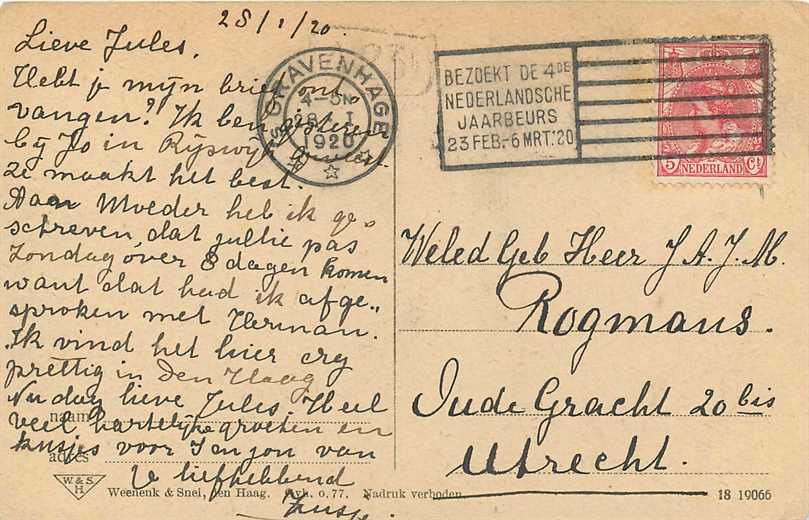 28/1/20.
Lieve Jules,
Hebt je mijn brief ont„
vangen? Ik ben gisteren
bij Jo in Rijswijk geweest
ze maakt het best.
Aan Moeder heb ik ge„
schreven, dat jullie pas
Zondag over 8 dagen komen
want dat had ik afge„
sproken met Herman.
Ik vind het hier erg
prettig in Den Haag
Nu dag lieve Jules. Heel
veel hartelijke groeten en
kusjes voor I en jon van
Je liefhebbend
Zusje.
naam
adres
'S GRAVENHAGE
4-5N
28 I
1920
BEZOEKT DE 4DE
NEDERLANDSCHE
JAARBEURS
23 FEB.-6 MRT.'20
5 Ct
NEDERLAND
Weled Geb Heer J. A. J. M.
Rogmans.
Oude Gracht 20 bis
Utrecht.
W. & S.
H
Weenenk & Snel, Den Haag. Gyh. o.77. Nadruk verboden
18 19066